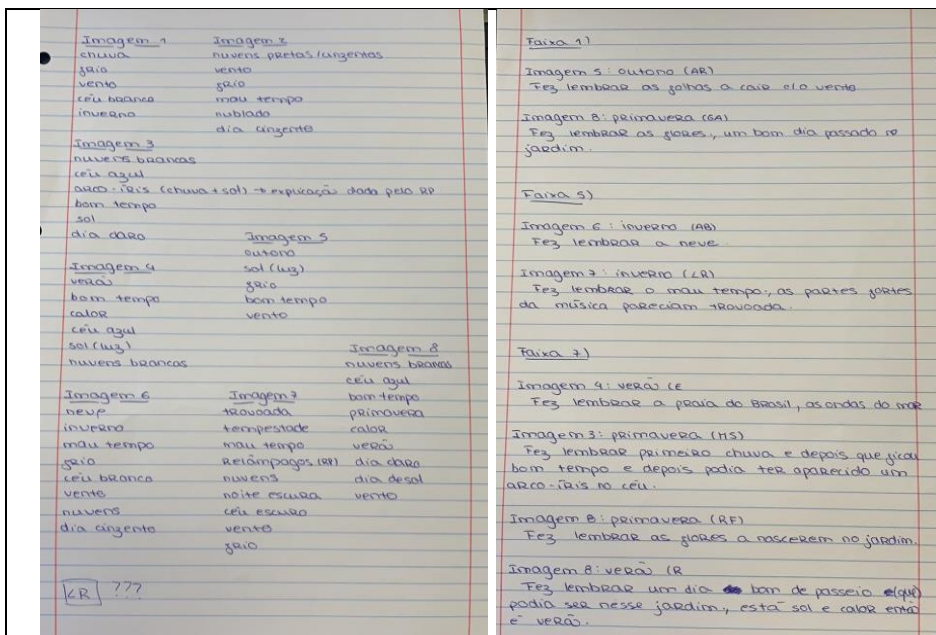 Imagem 1
chuva
frio
vento
céu branco
inverno
Imagem 2
nuvens pretas/cinzentas
vento
frio
mau tempo
nublado
dia cinzento
Imagem 3
nuvens brancas
céu azul
arco-íris (chuva + sol) → explicação dada pelo RP
bom tempo
sol
dia claro
Imagem 4
verão
bom tempo
calor
céu azul
sol (luz)
nuvens brancas
Imagem 5
outono
sol (luz)
frio
bom tempo
vento
Imagem 6
neve
inverno
mau tempo
frio
céu branco
vento
nuvens
dia cinzento
Imagem 7
trovoada
tempestade
mau tempo
Relâmpagos (RP)
nuvens
noite escura
céu escuro
vento
frio
Imagem 8
nuvens brancas
céu azul
bom tempo
primavera
calor
verão
dia claro
dia de sol
vento
LR ???
Faixa 1)
Imagem 5: outono (AR)
Fez lembrar as folhas a cair c/o vento
Imagem 8: primavera (GA)
Fez lembrar as flores, um bom dia passado no
jardim.
Faixa 5)
Imagem 6: inverno (AB)
Fez lembrar a neve.
Imagem 7: inverno (LR)
Fez lembrar o mau tempo, as partes fortes
da música pareciam trovoada.
Faixa 7)
Imagem 4: verão (E
Fez lembrar a praia do Brasil, as ondas do mar
Imagem 3: primavera (MS)
Fez lembrar primeiro chuva e depois que ficou
bom tempo e depois podia ter aparecido um
arco-íris no céu.
Imagem 8: primavera (RF)
Fez lembrar as flores a nascerem no jardim.
Imagem 8: verão (R
Fez lembrar um dia bom de passeio e(que)
podia ser nesse jardim, está sol e calor então
é verão.